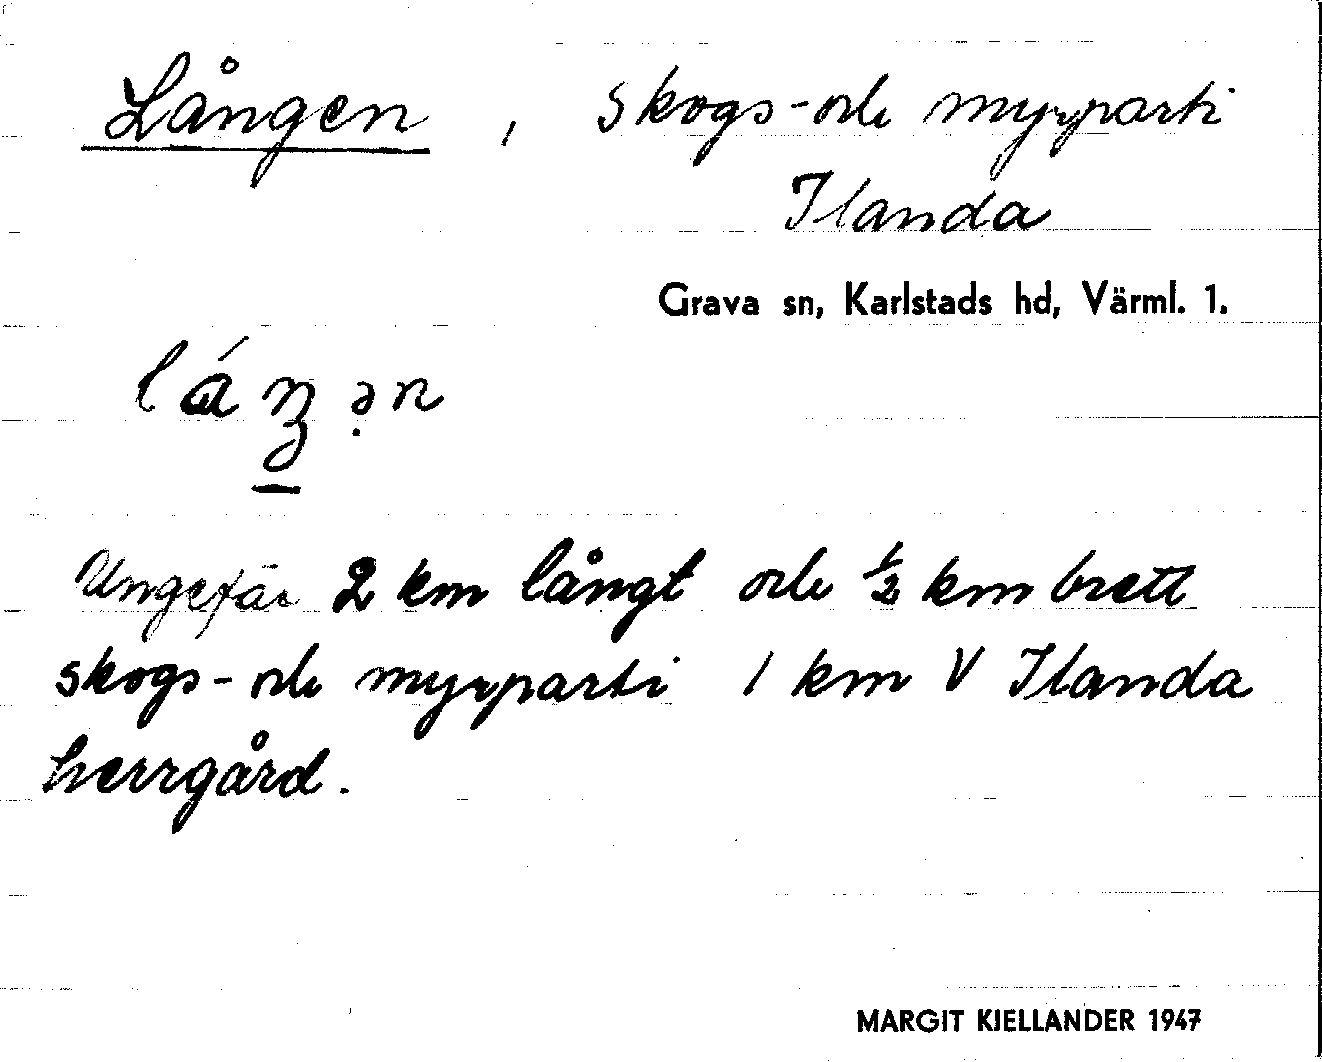 Lången, skogs- och myrparti
Ilanda
Grava sn, Karlstads hd, Värml. 1.
Ungefär 2 km långt och ½ km brett
skogs- och myrparti 1 km V Ilanda
herrgård.
MARGIT KJELLANDER 1947